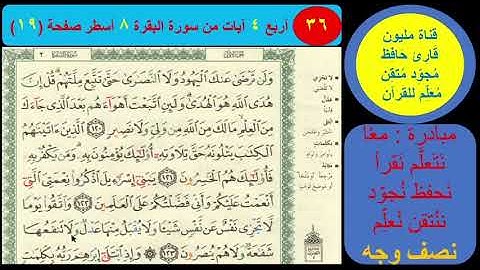 ٣٦ أربع ٤ آيات من سورة البقرة ٨ أسطر صفحة (١٩)
قناة مليون
قارئ حافظ
مُجوّد مُتقن
مُعلّم للقرآن
مبادرة : معًا
نَتعلّم نَقرأ
نَحفظ نُجوّد
نَتقن نُعلّم
نصف وجه
وَلَن تَرْضَىٰ عَنكَ ٱلْيَهُودُ وَلَا ٱلنَّصَٰرَىٰ حَتَّىٰ تَتَّبِعَ مِلَّتَهُمْ قُلْ إِنَّ
هُدَى ٱللَّهِ هُوَ ٱلْهُدَىٰ وَلَئِنِ ٱتَّبَعْتَ أَهْوَآءَهُم بَعْدَ ٱلَّذِى جَآءَكَ
مِنَ ٱلْعِلْمِ مَالَكَ مِنَ ٱللَّهِ مِن وَلِىٍّ وَلَا نَصِيرٍ ١٢٠ ٱلَّذِينَ ءَاتَيْنَٰهُمُ
ٱلْكِتَٰبَ يَتْلُونَهُۥ حَقَّ تِلَاوَتِهِۦٓ أُو۟لَٰٓئِكَ يُؤْمِنُونَ بِهِۦ وَمَن يَكْفُرْ بِهِۦ
فَأُو۟لَٰٓئِكَ هُمُ ٱلْخَٰسِرُونَ ١٢١ يَٰبَنِىٓ إِسْرَٰٓءِيلَ ٱذْكُرُوا۟ نِعْمَتِىَ ٱلَّتِىٓ
أَنْعَمْتُ عَلَيْكُمْ وَأَنِّى فَضَّلْتُكُمْ عَلَى ٱلْعَٰلَمِينَ ١٢٢ وَٱتَّقُوا۟ يَوْمًا
لَّا تَجْزِى نَفْسٌ عَن نَّفْسٍ شَيْـًٔا وَلَا يُقْبَلُ مِنْهَا عَدْلٌ وَلَا تَنفَعُهَا
شَفَٰعَةٌ وَلَا هُمْ يُنصَرُونَ ١٢٣ وَإِذِ ٱبْتَلَىٰٓ إِبْرَٰهِـۧمَ رَبُّهُۥ بِكَلِمَٰتٍ